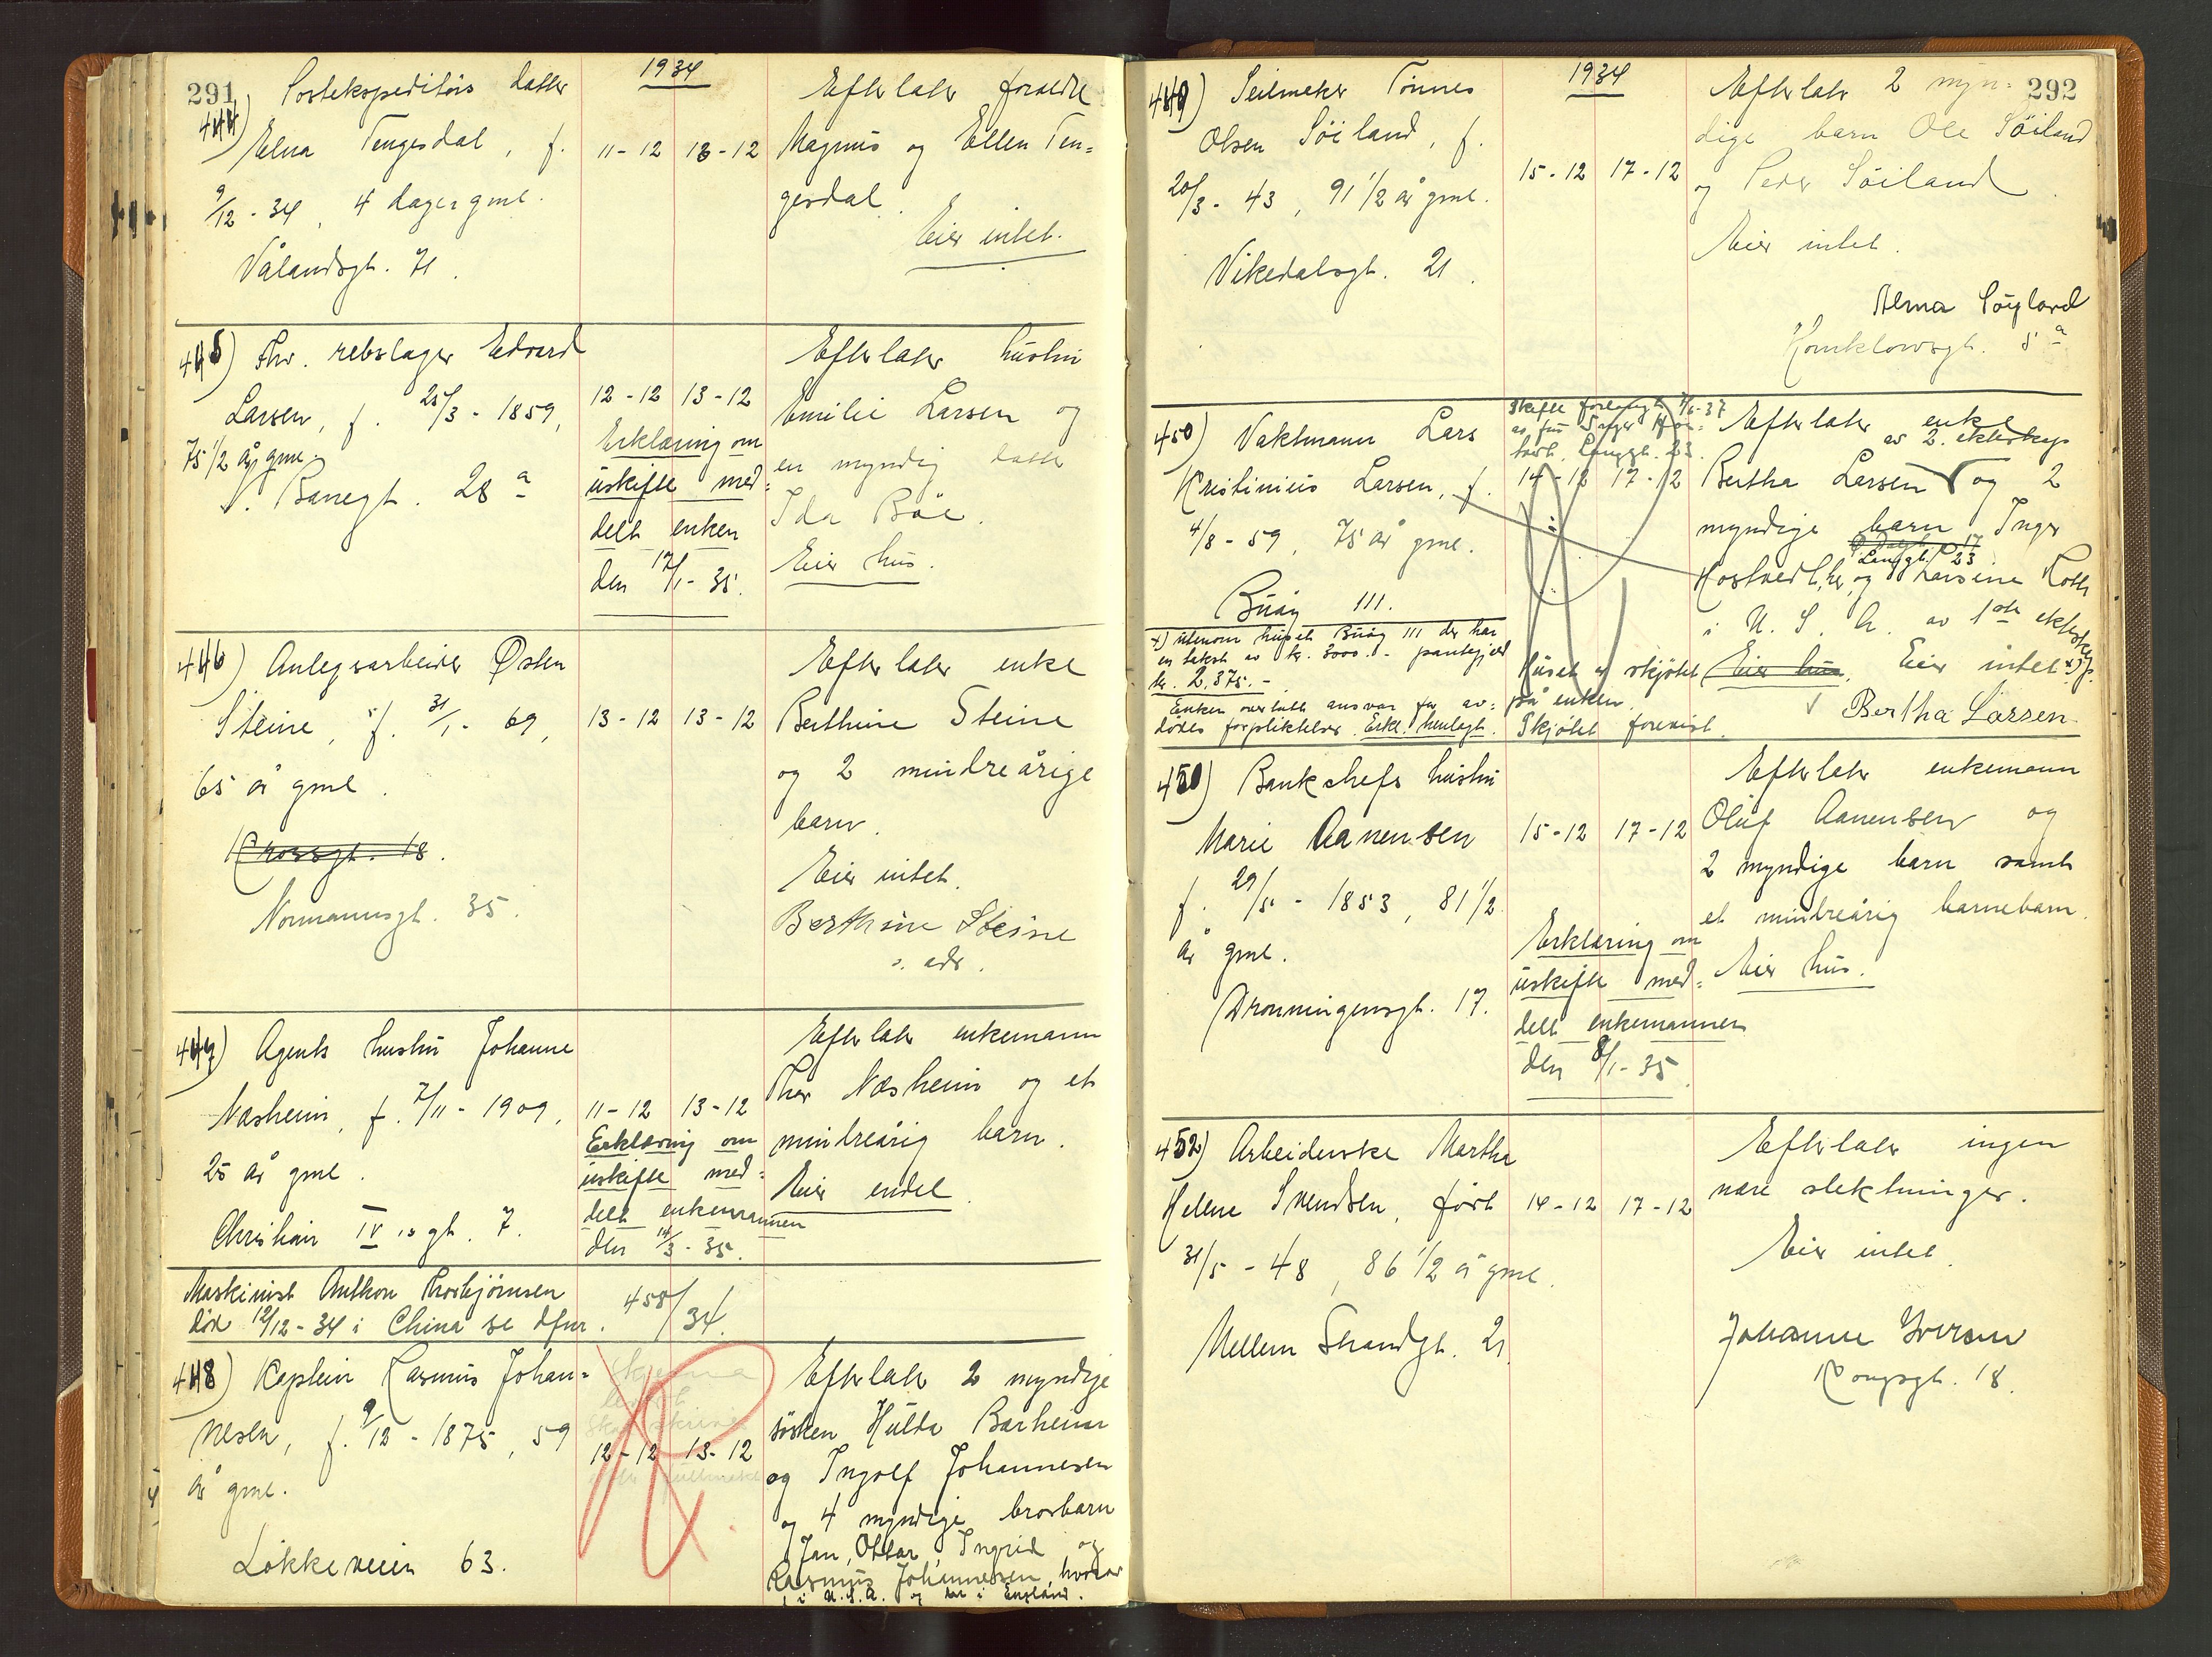 291
1934
444) Postekspeditørs datter
Elna Tengesdal, f.
9/12 - 34, 4 dager gml.
Vålandsgt. 71.
11-12 13-12
Efterlater foreldre
Magnus og Ellen Ten=
gesdal.
Eier intet.
445) Fhv. rebslager Edvard
Larsen, f. 25/3 - 1859,
75 1/2 år gml.
Banegt. 28 a
12-12 13-12
Erklæring om
uskifte med=
delt enken
den 17/1 - 35.
Efterlater hustru
Emilie Larsen og
en myndig datter
Ida Bøe.
Eier hus.
446) Anlegsarbeider Østen
Steine, f. 31/1 - 69,
65 år gml.
Krossgt. 18.
Normannsgt. 35.
13-12 13-12
Efterlater enke
Berthine Steine
og 2 mindreårige
barn.
Eier intet.
Berthine Steine
s. adr.
447) Agents hustru Johanne
Næsheim, f. 7/11 - 1909,
25 år gml.
Christian IV's gt. 7.
11-12 13-12
Erklæring om
uskifte med=
delt enkemannen
den 14/3 - 35.
Efterlater enkemann
Thor Næsheim og et
mindreårig barn.
Eier endel.
Maskinist Anthon Thorbjørnsen
død 12/12 - 34 i China se dfnr. 458/34.
448) Kaptein Rasmus Johan=
nesen, f. 9/12 - 1875, 59
år gml.
Løkkeveien 63.
Skjema
12-12 13-12
Efterlater 2 myndige
søsken Hulda Barheim
og Ingolf Johannesen
og 4 myndige brorbarn
Jan, Ottar, Ingrid og
Rasmus Johannesen, hvorav
1 i U.S.A. og en i England.
292
1934
449) Seilmaker Tønnes
Olsen Søiland, f.
20/3 - 43, 91 1/2 år gml.
Vikedalsgt. 21.
15-12 17-12
Efterlater 2 myn=
dige barn Ole Søiland
og Peder Søiland
Eier intet.
Alma Søyland
Hornklovesgt. 5 a
450) Vaktmann Lars
Kristinius Larsen, f.
4/8 - 59, 75 år gml.
Buøy 111.
x) utenom huset Buøy 111 der har
en takst av kr. 3000.- pantegjeld
kr. 2.375.-
Enken overtatt ansvar for av=
dødes forpliktelser. Erkl. henlagt.
Skifte forlangt
av fru Inger
Langgt. 23.
14-12 17-12
Huset er skjøtet
på enken.
Skjøtet forevist.
Efterlater enke
av 2. ekteskap
Bertha Larsen og 2
myndige barn Inger
Langgt. 23
Hostvedt, her, og Larsine Roth
i U.S.A. av 1ste ekteskap.
Eier hus. Eier intet x)
Bertha Larsen
451) Bankchefs hustru
Marie Aanensen
f. 29/5 - 1853, 81 1/2
år gml.
Dronningensgt. 17.
15-12 17-12
Erklæring om
uskifte med=
delt enkemannen
den 8/1 - 35.
Efterlater enkemann
Oluf Aanensen og
2 myndige barn samt
et mindreårig barnebarn.
Eier hus.
452) Arbeiderske Marthe
Helene Svendsen, født
31/5 - 48, 86 1/2 år gml.
Mellem Strandgt. 21.
14-12 17-12
Efterlater ingen
nære slektninger.
Eier intet.
Johanne Iversen
Kongsgt. 18.